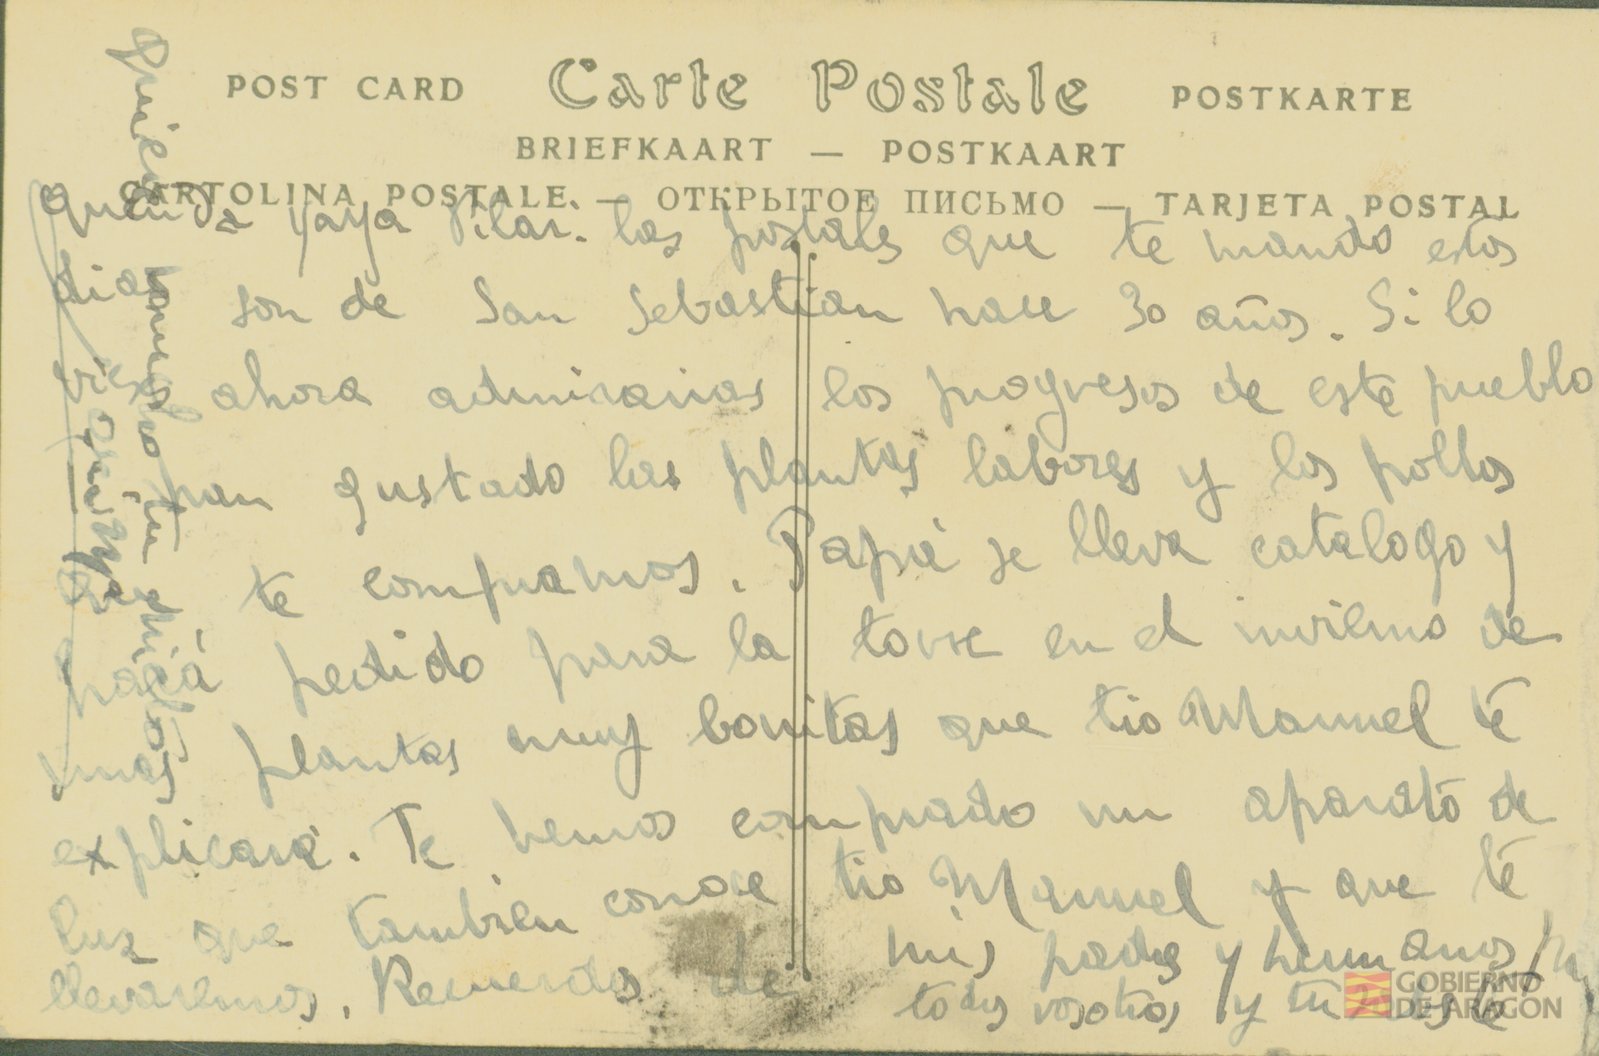 POST CARD Carte Postale POSTKARTE
BRIEFKAART — POSTKAART
CARTOLINA POSTALE — ОТКРЫТОЕ ПИСЬМО — TARJETA POSTAL
Querida Yaya Pilar. las postales que te mando estos
dias son de San Sebastian hace 30 años. Si lo
vieses ahora admirarias los progresos de este pueblo
han gustado las plantas labores y los pollos
que te compramos. Papá se lleva catalogo y
hará pedido para la torre en el invierno de
unas plantas muy bonitas que tio Manuel te
explicará. Te hemos comprado un aparato de
luz que tambien conoce tio Manuel y que te
llevaremos. Recuerdos de mis padres y hermanos
todos vosotros y tu
quiere mucho tu nieto
GOBIERNO
DE ARAGON